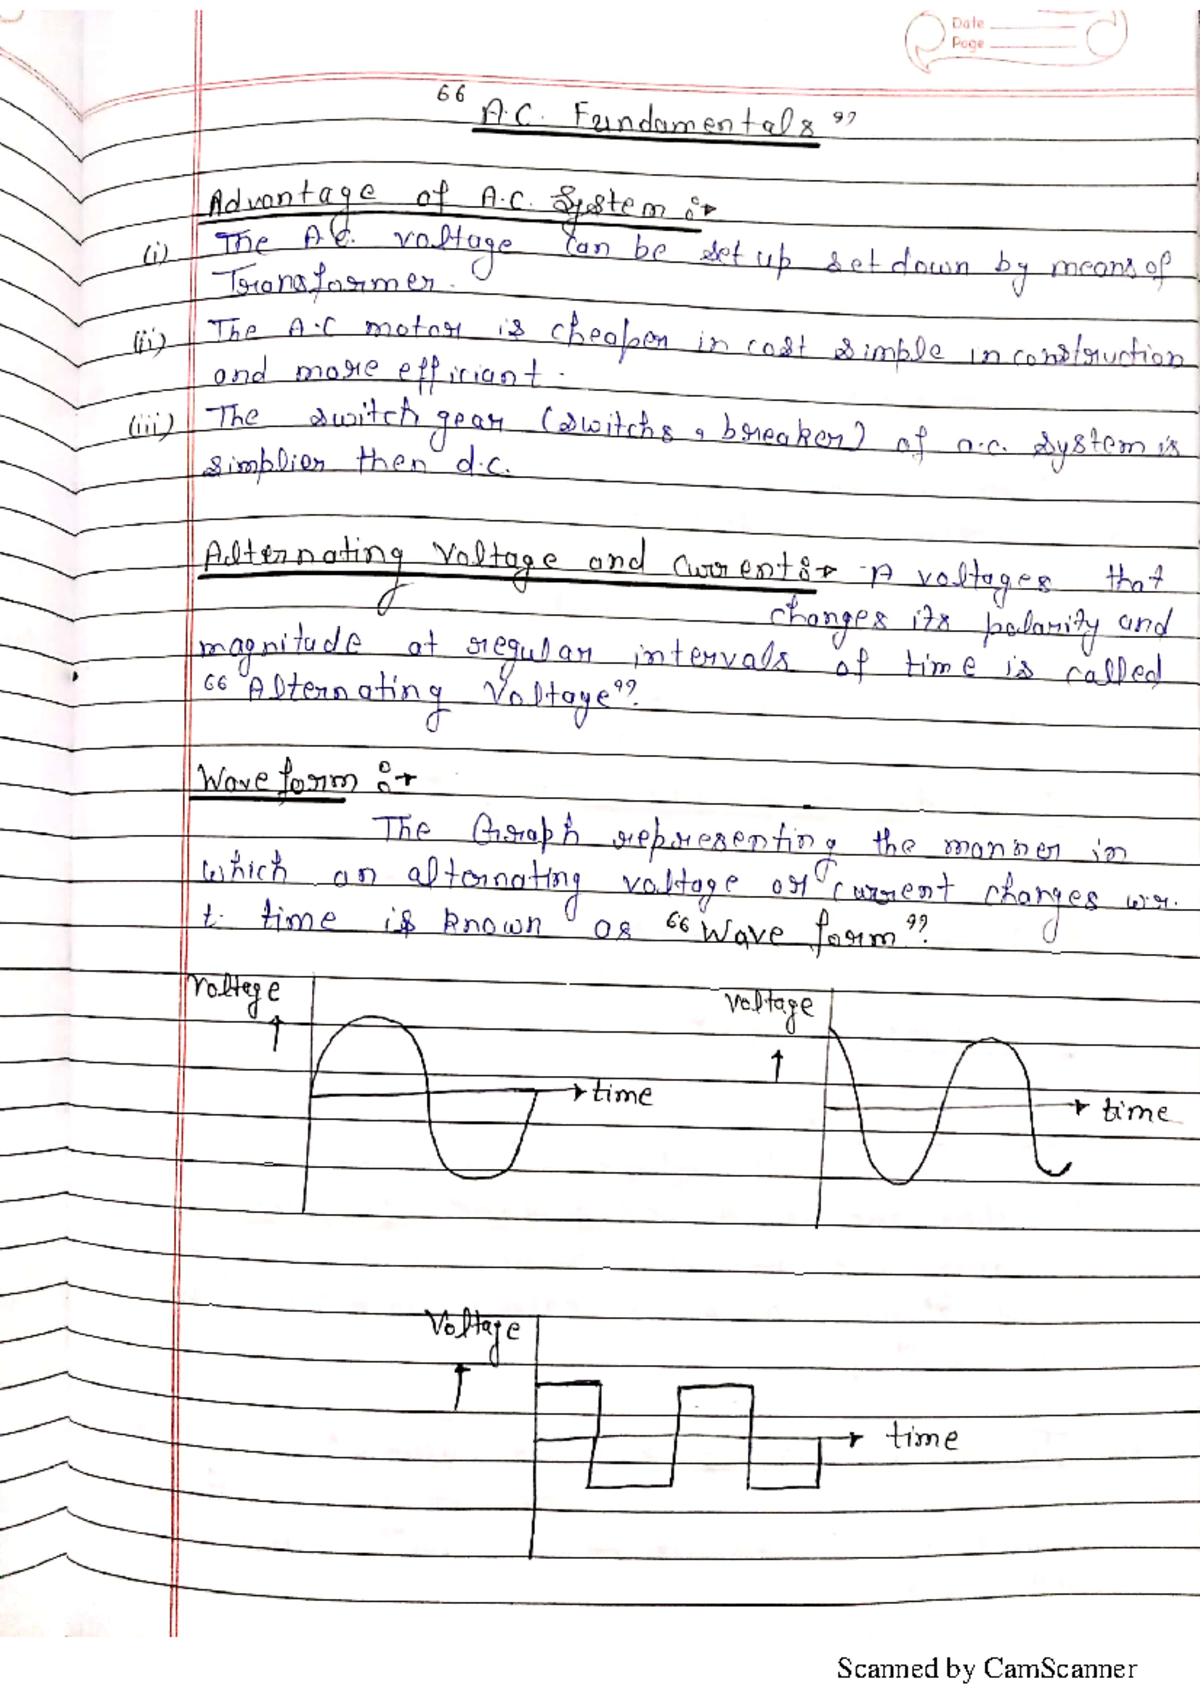 Date
Page
" A.C. Fundamentals "
Advantage of A.C. System :→
(i) The A.C. voltage can be set up set down by means of
Transformer.
(ii) The A.C motor is cheaper in cost simple in construction
and more efficiant.
(iii) The switch gear (switchs, breaker) of a.c. system is
simplier then d.c.
Alternating Voltage and Current :→ A voltages that
changes its polarity and
magnitude at regular intervals of time is called
"Alternating Voltage".
Wave form :→
The Graph representing the manner in
which an alternating voltage or current changes w.r.
t. time is known as "Wave form".
Voltage
Voltage
↑
↑
→ time
→ time
Voltage
↑
→ time
Scanned by CamScanner